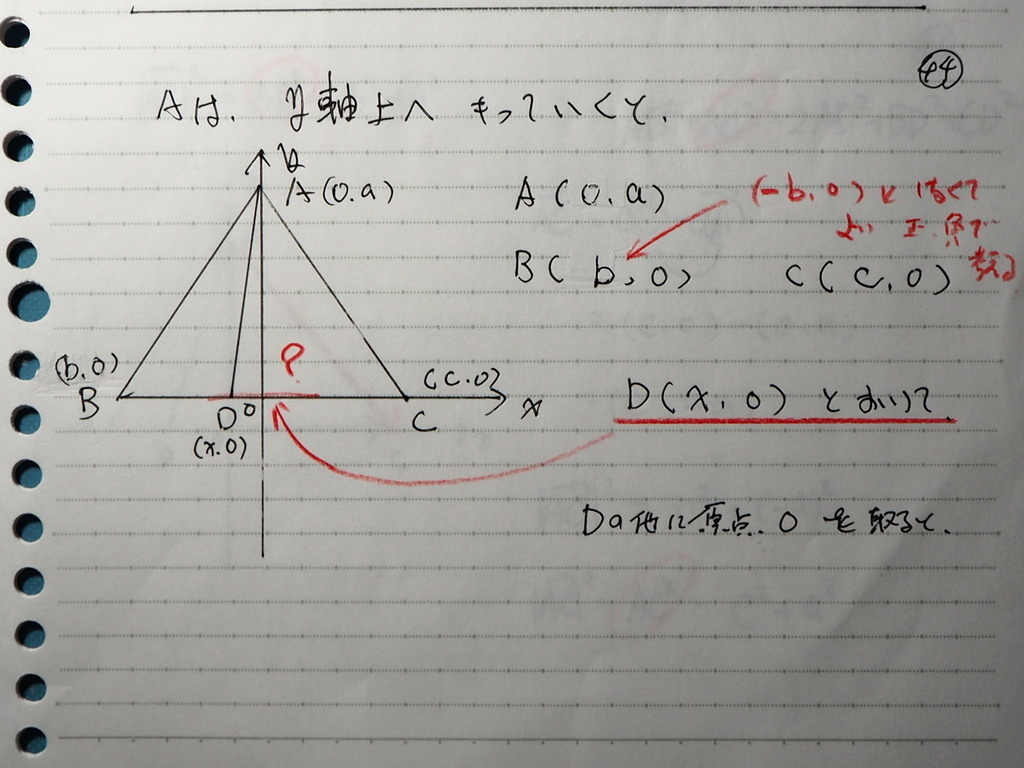 44
Aは、y軸上へもっていくと、
y
A(0,a)
A(0,a)
(-b,0)に
よい 正負で
考える
B(b,0)
C(c,0)
(b,0)
B
?
(c,0)
D(x,0)とおいて
D
0
(x,0)
C
x
Dの他に原点、0を取ると、